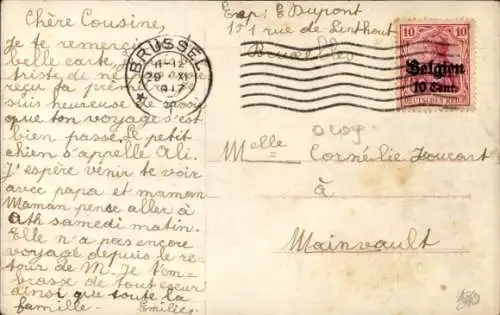 Chère Cousine,
Je te remercie
belle carte, j'
triste de ne
reçu ta pre
suis heureuse de
que ton voyage s'est
bien passé. Le petit
chien s'appelle Ali.
J'espère venir te voir
avec papa et maman
Maman pense aller à
Ath samedi matin.
Elle n'a pas encore
voyagé depuis le re-
tour de M. Je t'em-
brasse de tout cœur
ainsi que toute la
famille.
Emilie.
Exp: E Dupont
171 rue de Linthout
Bruxelles.
BRUSSEL
11-12
29 XI
1917
10 10
Belgien
10 Cent.
DEUTSCHES REICH
Melle Cornélie Foucart
à
Mainvault